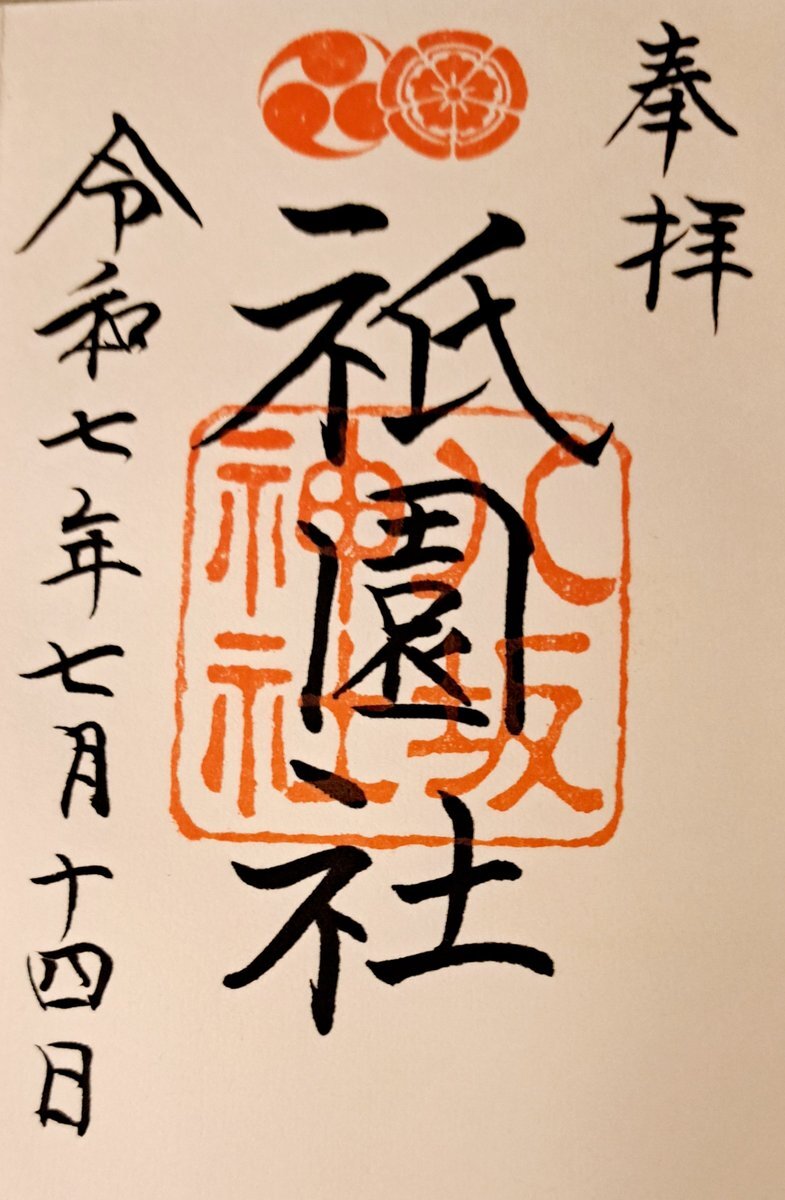 奉拝
祇園社
八坂
神社
令和七年七月十四日